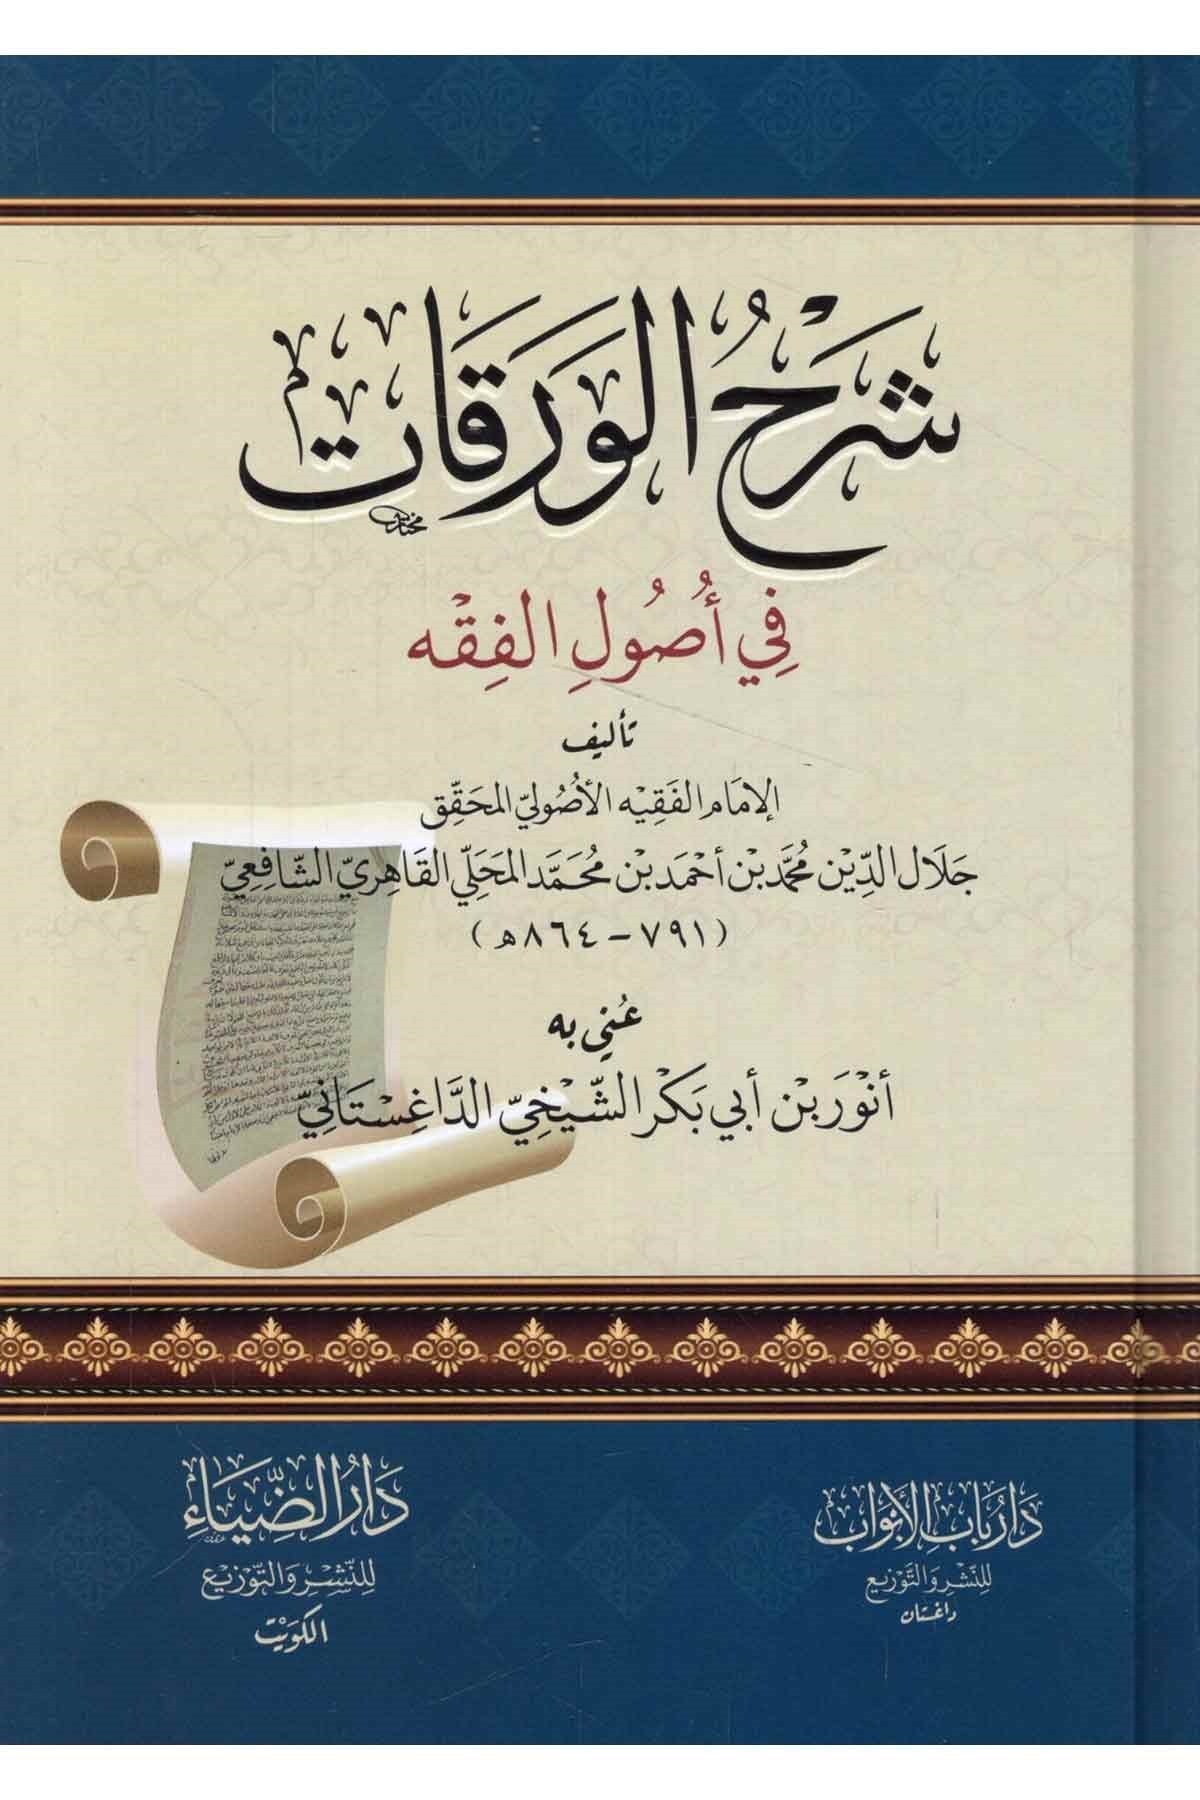 شَرْحُ الوَرَقَات
فِي أُصُولِ الفِقْه
تأليف
الإمَام الفَقِيْه الأصُوليّ المحَقِّق
جَلَال الدِّيْن محمَّد بْن أحمَد بْن مُحَمَّد المَحَلّي القَاهِريّ الشَّافِعِيّ
(٧٩١-٨٦٤ھ)
عُني به
أنْوَر بْن أبي بَكْر الشَّيْخيّ الدَّاغِسْتَانيّ
دَار بَاب الأَبْوَاب
للنَّشْر وَالتَّوْزيع
داغستان
دَارُ الضِّيَاءِ
للنَّشْر وَالتَّوْزيْع
الكوَيْت